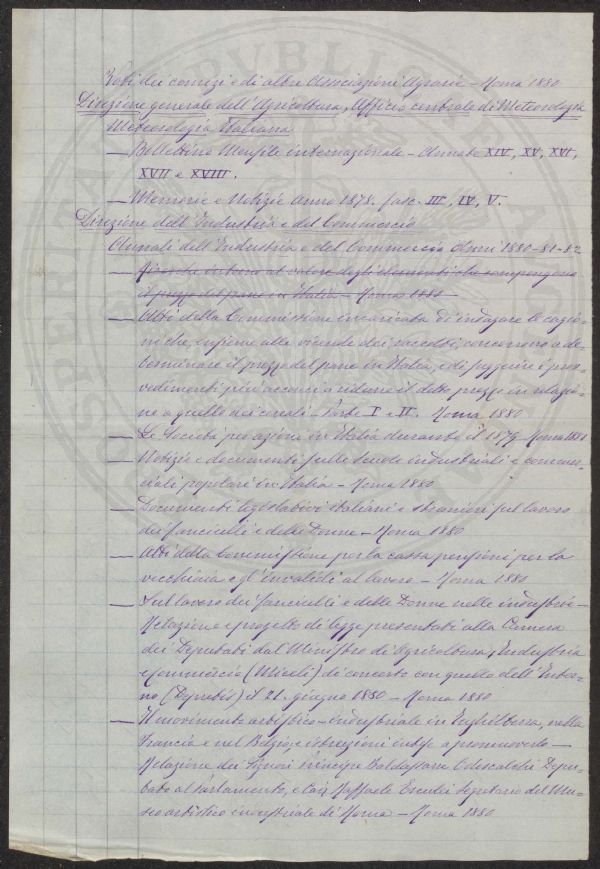 Voti dei comizi e di altre Associazioni Agrarie - Roma 1880
Direzione generale dell'Agricoltura, Ufficio centrale di Meteorologia
Meteorologia Italiana
— Bollettino Mensile internazionale - Annate XIV, XV, XVI,
XVII e XVIII.
— Memorie e Notizie Anno 1878. fasc. III, IV, V.
Direzione dell'Industria e del Commercio
Annali dell'Industria e del Commercio Anni 1880-81-82
— intorno al valore degli elementi che compongono
il prezzo del pane in Italia - Roma 1880
— Atti della Commissione incaricata di indagare le cagio-
ni che, insieme alle vicende dei raccolti concorrono a de-
terminare il prezzo del pane in Italia, e di suggerire i prov-
vedimenti più acconci a ridurre il detto prezzo in relazio-
ne a quello dei cereali - Parte I e II. Roma 1880
— Le Società per azione in Italia durante il 1879 Roma 1880
— Notizie e documenti sulle scuole industriali e commer-
ciali popolari in Italia - Roma 1880
— Documenti legislativi italiani e stranieri sul lavoro
dei fanciulli e delle Donne - Roma 1880
— Atti della Commissione per la cassa pensioni per la
vecchiaia e gl'invalidi al lavoro - Roma 1880
— Sul lavoro dei fanciulli e delle Donne nelle industrie -
Relazione e progetto di legge presentati alla Camera
dei Deputati dal Ministro di Agricoltura, Industria
e Commercio (Miceli) di concerto con quello dell'Inter-
no (Depretis) il 21. giugno 1880 - Roma 1880
— Il movimento artistico-industriale in Inghilterra, nella
Francia e nel Belgio, e istruzioni intese a promuoverlo -
Relazione dei Signori Principe Baldassarre Odescalchi Depu-
tato al Parlamento, e Cav. Raffaele Erculei Segretario del Mu-
seo artistico industriale di Roma - Roma 1880